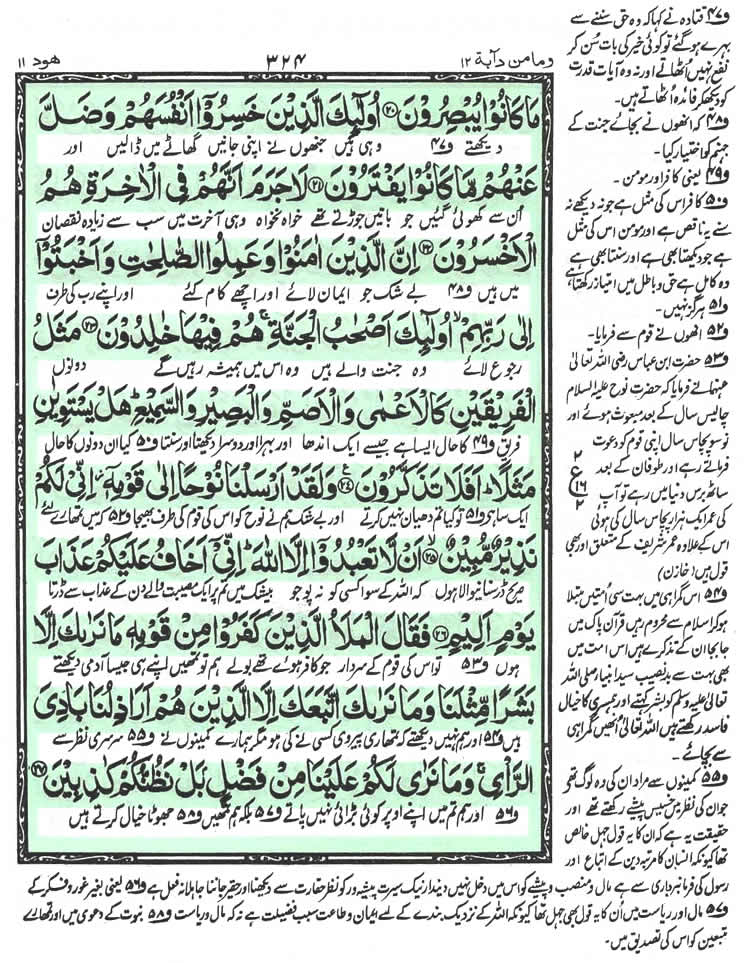 ومامن دآبة ١٢
٣٢٤
هود ١١
مَا كَانُوْا يُبْصِرُوْنَ ﴿٢٠﴾ اُولٰٓئِكَ الَّذِيْنَ خَسِرُوْٓا اَنْفُسَهُمْ وَضَلَّ
دیکھتے و۴۷ وہی ہیں جنھوں نے اپنی جانیں گھاٹے میں ڈالیں اور
عَنْهُمْ مَّا كَانُوْا يَفْتَرُوْنَ ﴿٢١﴾ لَا جَرَمَ اَنَّهُمْ فِى الْاٰخِرَةِ هُمُ
اُن سے کھوئی گئیں جو باتیں جوڑتے تھے خواہ نخواہ وہی آخرت میں سب سے زیادہ نقصان
الْاَخْسَرُوْنَ ﴿٢٢﴾ اِنَّ الَّذِيْنَ اٰمَنُوْا وَعَمِلُوا الصّٰلِحٰتِ وَاَخْبَتُوْٓا
میں ہیں و۴۸ بے شک جو ایمان لائے اور اچھے کام کئے اور اپنے رب کی طرف
اِلٰى رَبِّهِمْ ۙ اُولٰٓئِكَ اَصْحٰبُ الْجَنَّةِ ۚ هُمْ فِيْهَا خٰلِدُوْنَ ﴿٢٣﴾ مَثَلُ
رجوع لائے وہ جنت والے ہیں وہ اس میں ہمیشہ رہیں گے دونوں
الْفَرِيْقَيْنِ كَالْاَعْمٰى وَالْاَصَمِّ وَالْبَصِيْرِ وَالسَّمِيْعِ ؕ هَلْ يَسْتَوِيٰنِ
فریق و۴۹ کا حال ایسا ہے جیسے ایک اندھا اور بہرا اور دوسرا دیکھتا اور سنتا و۵۰ کیا ان دونوں کا حال
مَثَلًا ؕ اَفَلَا تَذَكَّرُوْنَ ﴿٢٤﴾ وَلَقَدْ اَرْسَلْنَا نُوْحًا اِلٰى قَوْمِهٖٓ ۫ اِنِّىْ لَكُمْ
ایک سا ہے و۵۱ تو کیا تم دھیان نہیں کرتے اور بے شک ہم نے نوح کو اس کی قوم کی طرف بھیجا و۵۲ کہ میں تمھارے لئے
نَذِيْرٌ مُّبِيْنٌ ﴿٢٥﴾ اَنْ لَّا تَعْبُدُوْٓا اِلَّا اللّٰهَ ؕ اِنِّىْٓ اَخَافُ عَلَيْكُمْ عَذَابَ
صریح ڈر سنانیوالا ہوں کہ اللہ کے سوا کسی کو نہ پوجو بیشک میں تم پر ایک مصیبت والے دن کے عذاب سے ڈرتا
يَوْمٍ اَلِيْمٍ ﴿٢٦﴾ فَقَالَ الْمَلَاُ الَّذِيْنَ كَفَرُوْا مِنْ قَوْمِهٖ مَا نَرٰىكَ اِلَّا
ہوں و۵۳ تو اس کی قوم کے سردار جو کافر ہوئے تھے بولے ہم تو تمھیں اپنے ہی جیسا آدمی دیکھتے
بَشَرًا مِّثْلَنَا وَمَا نَرٰىكَ اتَّبَعَكَ اِلَّا الَّذِيْنَ هُمْ اَرَاذِلُنَا بَادِىَ
ہیں و۵۴ اور ہم نہیں دیکھتے کہ تمھاری پیروی کسی نے کی ہو مگر ہمارے کمینوں نے و۵۵ سرسری نظر سے
الرَّاْىِ ۚ وَمَا نَرٰى لَكُمْ عَلَيْنَا مِنْ فَضْلٍۭ بَلْ نَظُنُّكُمْ كٰذِبِيْنَ ﴿٢٧﴾
و۵۶ اور ہم تم میں اپنے اوپر کوئی بڑائی نہیں پاتے و۵۷ بلکہ ہم تمھیں و۵۸ جھوٹا خیال کرتے ہیں
و۴۷ قتادہ نے کہا کہ وہ حق سننے سے
بہرے ہوگئے تو کوئی خیر کی بات سُن کر
نفع نہیں اُٹھاتے اور نہ وہ آیات قدرت
کو دیکھ کر فائدہ اُٹھاتے ہیں۔
و۴۸ کہ انھوں نے بجائے جنت کے
جہنم کو اختیار کیا۔
و۴۹ یعنی کافر اور مومن۔
و۵۰ کافر اس کی مثل ہے جو نہ دیکھے نہ
سنے یہ ناقص ہے اور مومن اس کی مثل
ہے جو دیکھتا بھی ہے اور سنتا بھی ہے
وہ کامل ہے حق و باطل میں امتیاز رکھتا ہے
و۵۱ ہرگز نہیں۔
و۵۲ انھوں نے قوم سے فرمایا۔
و۵۳ حضرت ابن عباس رضی اللہ تعالیٰ
عنہما نے فرمایا کہ حضرت نوح علیہ السلام
چالیس سال کے بعد مبعوث ہوئے اور
نو سو پچاس سال اپنی قوم کو دعوت
فرماتے رہے اور طوفان کے بعد
ساٹھ برس دنیا میں رہے تو آپ
کی عمر ایک ہزار پچاس سال کی ہوئی
اس کے علاوہ عمر شریف کے متعلق اور بھی
قول ہیں (خازن)
و۵۴ اس گمراہی میں بہت سی اُمتیں مبتلا
ہوکر اسلام سے محروم رہیں قرآن پاک میں
جابجا ان کے تذکرے ہیں اس امت میں
بھی بہت سے بدنصیب سید انبیاء صلی اللہ
تعالیٰ علیہ وسلم کو بشر کہتے اور ہمسری کا خیال
فاسد رکھتے ہیں اللہ تعالیٰ اُنھیں گمراہی
سے بچائے۔
و۵۵ کمینوں سے مراد ان کی وہ لوگ تھے
جو ان کی نظر میں خسیس پیشے رکھتے تھے اور
حقیقت یہ ہے کہ ان کا یہ قول جہل خالص
تھا کیونکہ انسان کا مرتبہ دین کے اتباع اور
رسول کی فرمانبرداری سے ہے مال و منصب و پیشے کو اس میں دخل نہیں دیندار نیک سیرت پیشہ ور کو نظر حقارت سے دیکھنا اور حقیر جاننا جاہلانہ فعل ہے و۵۶ یعنی بغیر غور و فکر کے
و۵۷ مال اور ریاست میں اُن کا یہ قول بھی جہل تھا کیونکہ اللہ کے نزدیک بندے کے لیے ایمان و طاعت سبب فضیلت ہے نہ کہ مال و ریاست و۵۸ نبوت کے دعوی میں اور تمھارے
متبعین کو اس کی تصدیق میں۔
٢
ع
١٦
٢